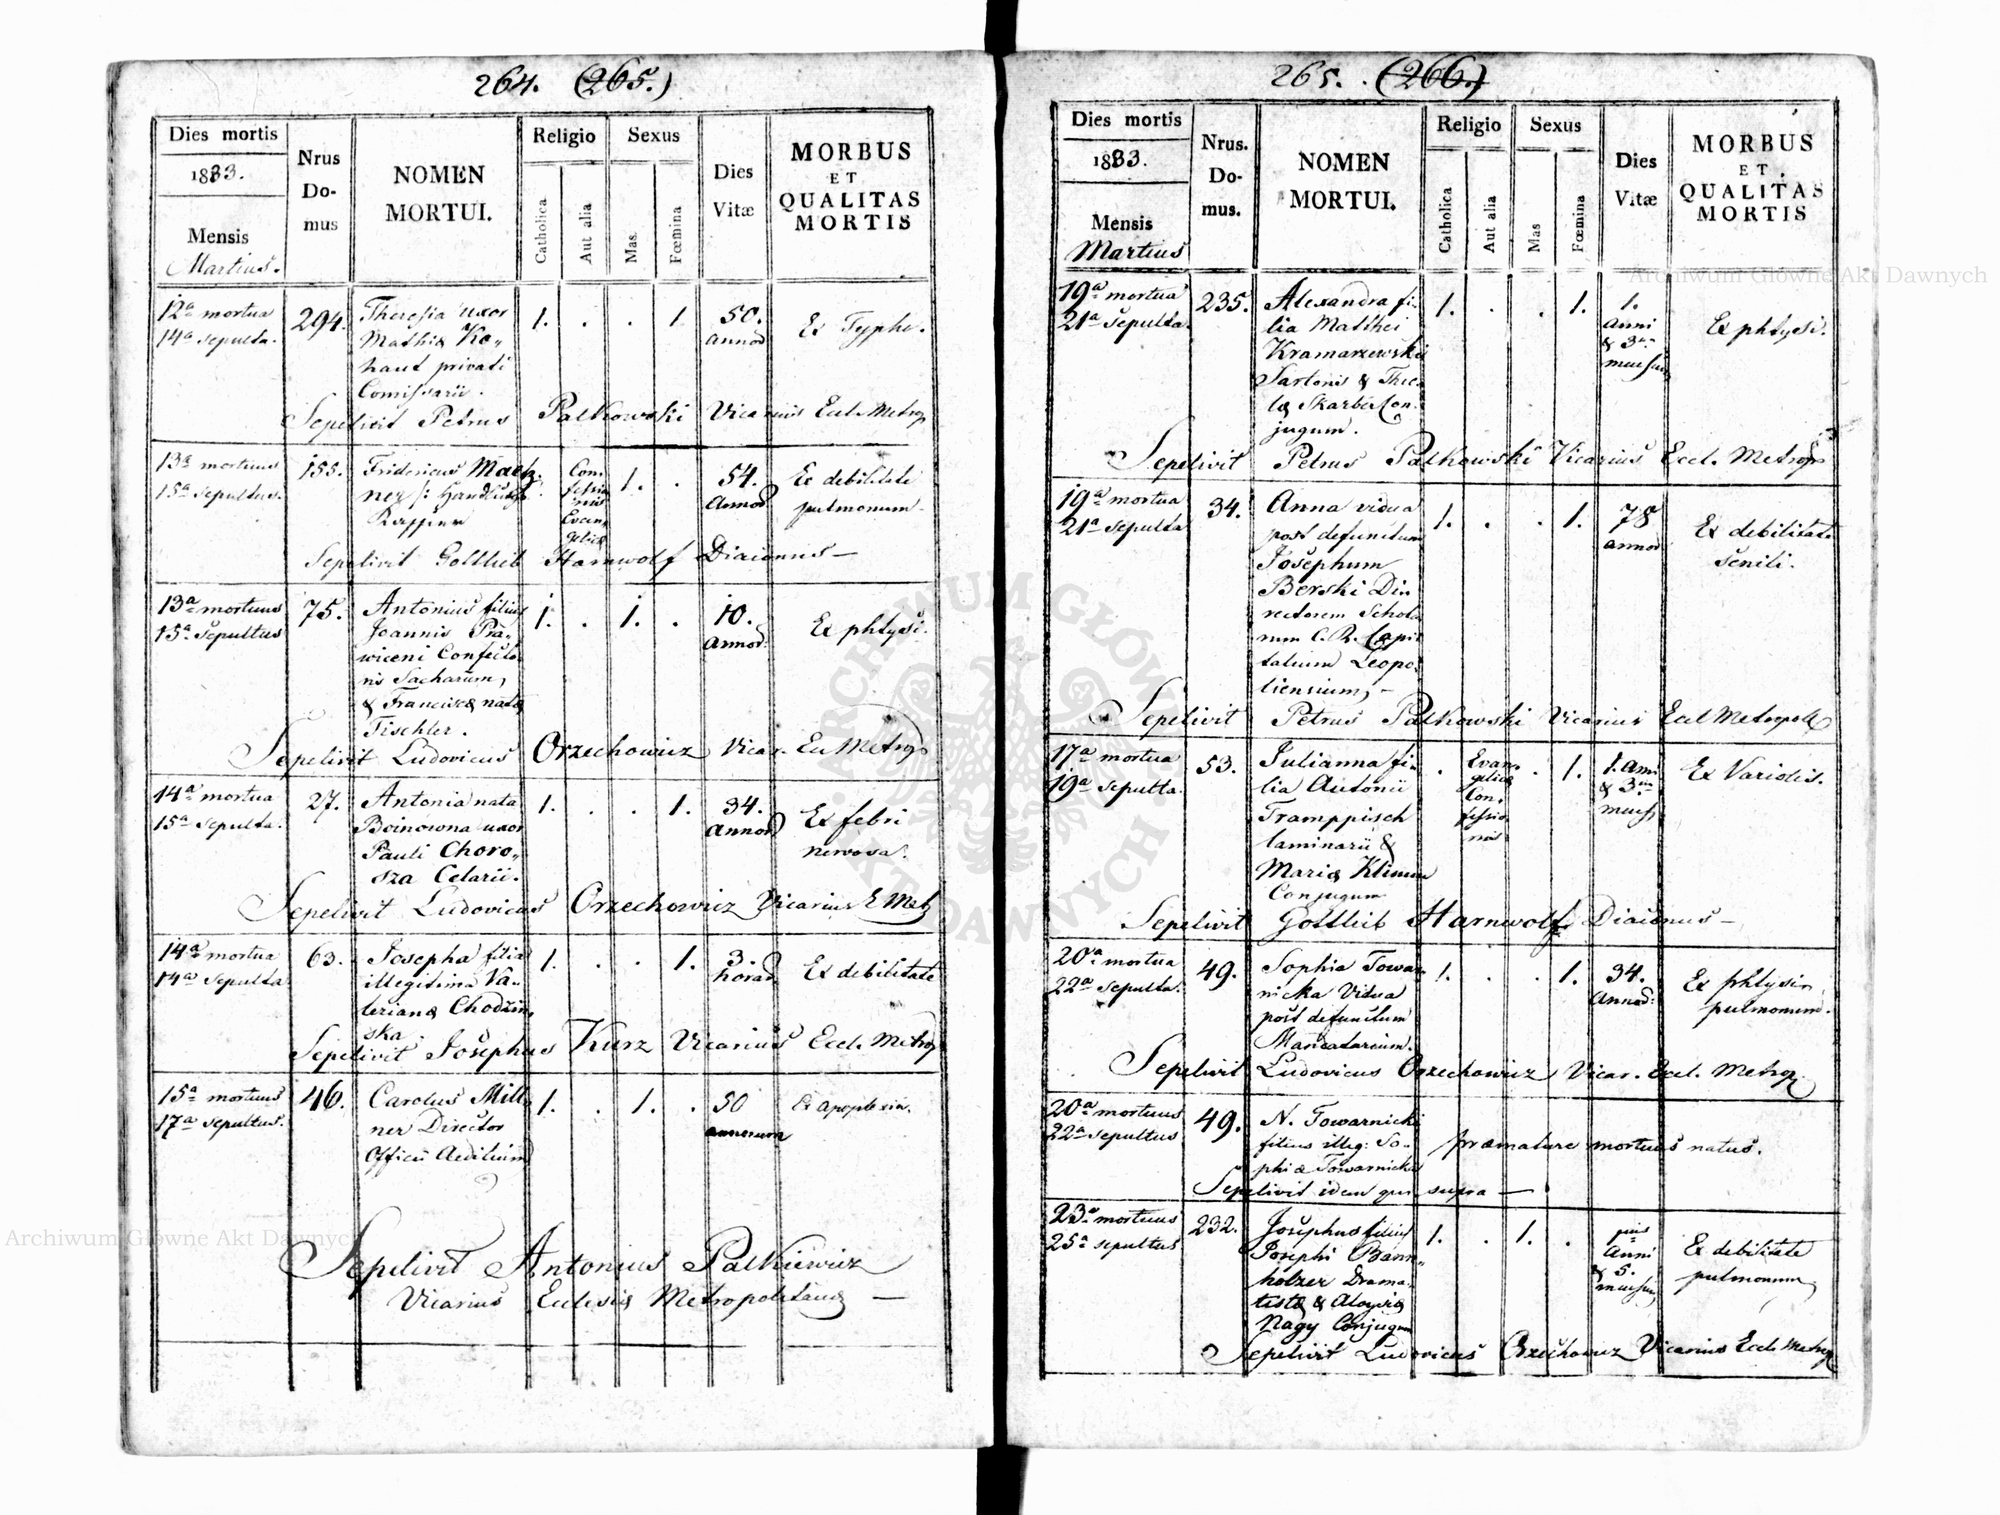 264. (265.)
Dies mortis
1833.
Mensis
Martius.
Nrus
Do-
mus
NOMEN
MORTUI.
Religio
Catholica
Aut alia
Sexus
Mas.
Fœmina
Dies
Vitæ
MORBUS
ET
QUALITAS
MORTIS
12a mortua
14a sepulta.
294.
Theresia uxor
Mathiæ Ko„
haut privati
Comissarii.
1. . . 1
50.
annor
Ex Typho.
Sepelivit Petrus Palkowski Vicarius Eccl. Metrop
13a mortuus
15a sepultus.
155.
Fridericus
Con„
fessio
nis
Evan„
gelicæ
1. .
54.
Annor
Ex debilitate
pulmonum.
Sepelivit Gottlieb Harnwolf Diaconus —
13a mortuus
15a sepultus
75.
Antonius filius
Joannis Pra„
wiceni Confecto
ris Sacharum,
& Franciscæ natæ
Tischler.
1. . 1. .
10.
Annor.
Ex phtysi.
Sepelivit Ludovicus Orzechowicz Vicar. Ecc Metrop
14a mortua
15a sepulta.
27.
Antonia nata
Boinowna uxor
Pauli Choro„
sza Celarii.
1. . . 1.
34.
Annor
Ex febri
nervosa.
Sepelivit Ludovicus Orzechowicz Vicarius E Met
14a mortua
14a sepulta
63.
Josepha filia
illegitima Va„
lerianæ Chodzin„
ska.
1. . . 1.
3.
horar.
Ex debilitate
Sepelivit Josephus Kurz Vicarius Eccl. Metrop
15a mortuus
17a sepultus.
46.
Carolus Mill„
ner Director
Officii Aedilium
1. . 1. .
50
annorum
Ex apoplexia.
Sepelivit Antonius Palkiewicz
Vicarius Eclesiæ Metropolitanæ —
265. (266.)
Dies mortis
1833.
Mensis
Martius
Nrus.
Do-
mus.
NOMEN
MORTUI.
Religio
Catholica
Aut alia
Sexus
Mas
Fœmina
Dies
Vitæ
MORBUS
ET
QUALITAS
MORTIS
19a mortua
21a sepulta.
235.
Alexandra fi„
lia Matthei
Kramarzewski
Sartoris & Thec„
læ Skarbek Con„
jugum.
1. . . 1.
1.
anni
& 3um
mensium
Ex phtysi.
Sepelivit Petrus Palkowski Vicarius Eccl. Metrop
19a mortua
21a sepulta
34.
Anna vidua
post defunctum
Josephum
Berski Di„
rectorem Schola
rum C. R. Capi
talium Leopo„
liensium, —
1. . . 1.
78
annor
Ex debilitate
senili.
Sepelivit Petrus Palkowski Vicarius Eccl Metropolæ
17a mortua
19a sepulta.
53.
Julianna fi„
lia Antonii
Tramppisch
laminarii &
Mariæ Klimm
Conjugum
.
Evan„
gelicæ
Con„
fessio
nis
. 1.
1. Ani
& 3um
mens
Ex Variolis.
Sepelivit Gottlieb Harnwolf Diaconus —
20a mortua
22a sepulta.
49.
Sophia Towar„
nicka Vidua
post defunctum
Mancatarium.
1. . . 1.
34.
Annor.
Ex phtysi
pulmonum.
Sepelivit Ludovicus Orzechowicz Vicar. Eccl. Metrop.
20a mortuus
22a sepultus
49.
N. Towarnicki
filius illeg: So„
phiæ Towarnicka
præmature mortuus natus.
Sepelivit idem qui supra —
23a mortuus
25a sepultus
232.
Josephus filius
Josephi Bann„
holzer Drama„
tistæ & Aloysiæ
Nagy Conjugum
1. . 1. .
Anni
& 5.
mensium
Ex debilitate
pulmonum
Sepelivit Ludovicus Orzechowicz Vicarius Eccl. Metrop
Archiwum Główne Akt Dawnych
Archiwum Główne Akt Dawnych
ARCHIWUM GŁÓWNE AKT DAWNYCH